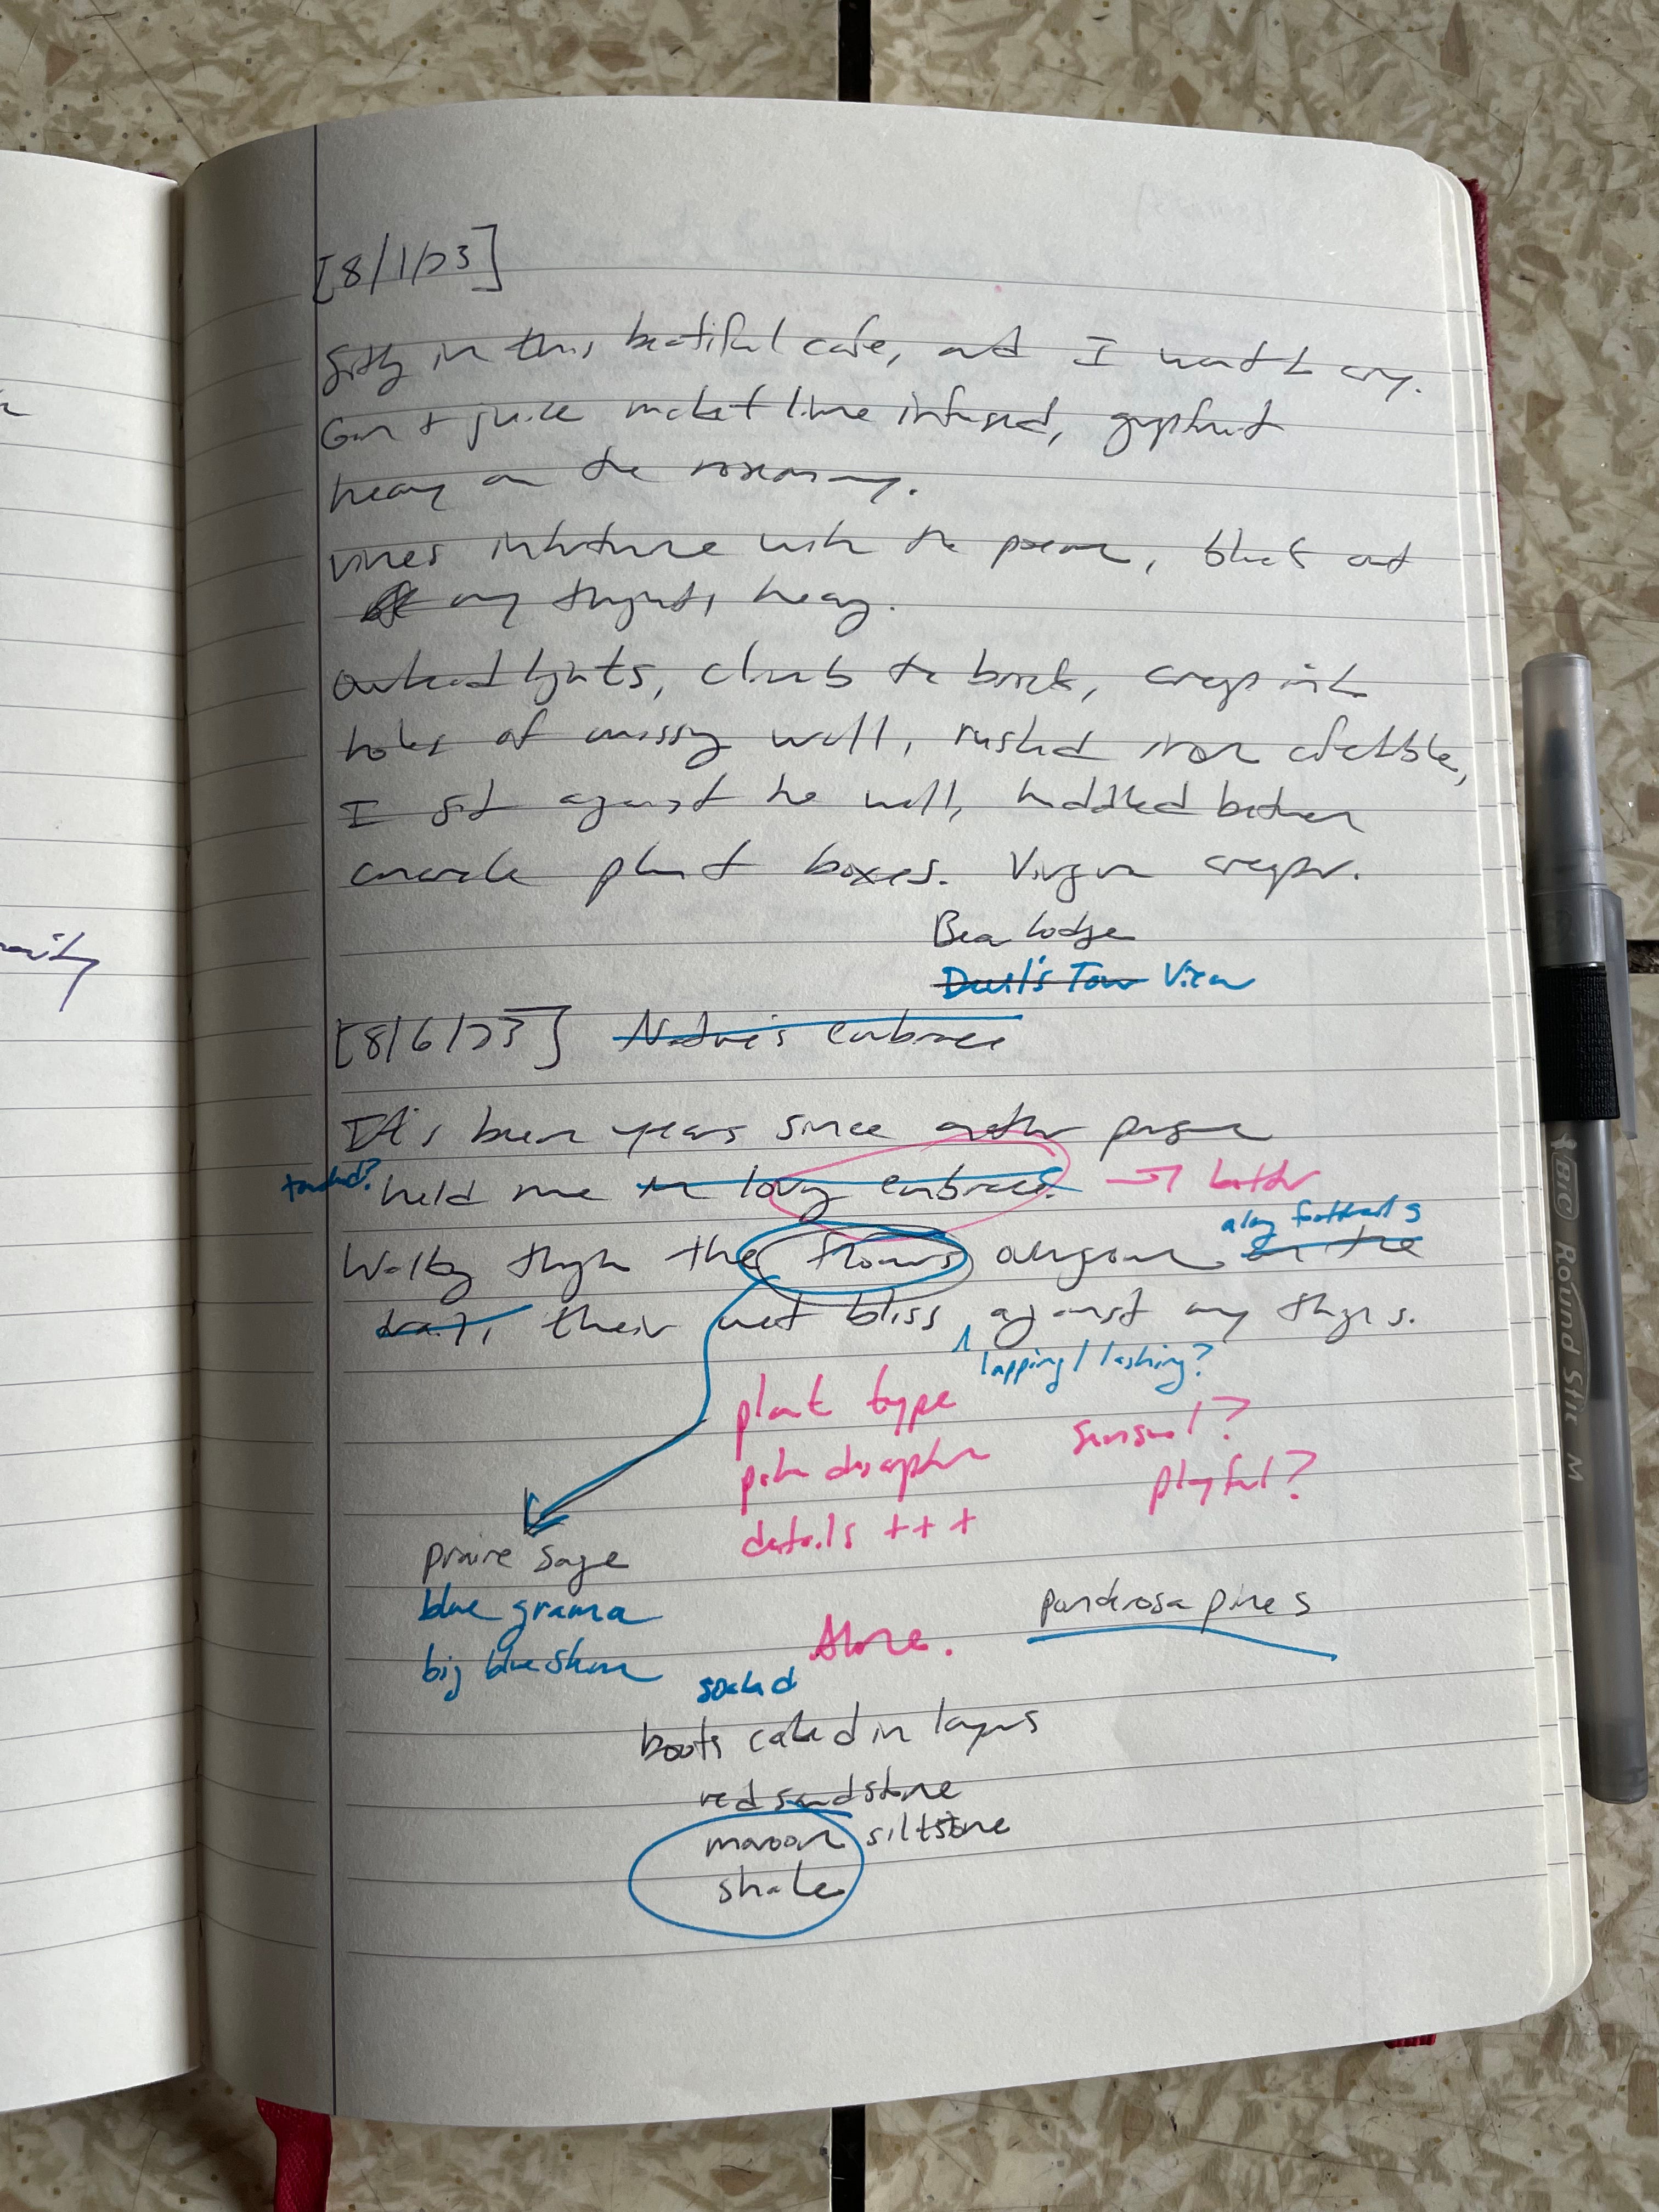 [8/1/23]
Sitting in this beautiful cafe, and I want to cry.
Gin & juice market lime infused, grapefruit
heavy on the rosemary.
vines intertwine with the , block out
my thoughts, heavy.
Overhead lights, climb the brick, creep into
holes of missing wall, rusted iron
I sit against the wall, huddled between
concrete plant boxes. Virgin creeper.
Bear Lodge
Devil's Tower View
[8/6/23] Nature's embrace
It's been years since another person
touched? held me in loving embrace. → better
along foottrails
Walking through the flowers overgrown on the
trail, their wet bliss against my thighs.
lapping / lashing?
plant type
sensual?
description
playful?
details +++
prairie sage
blue grama
ponderosa pines
big bluestem
soaked
boots caked in layers
red sandstone
maroon siltstone
shale
BIC Round Stic M